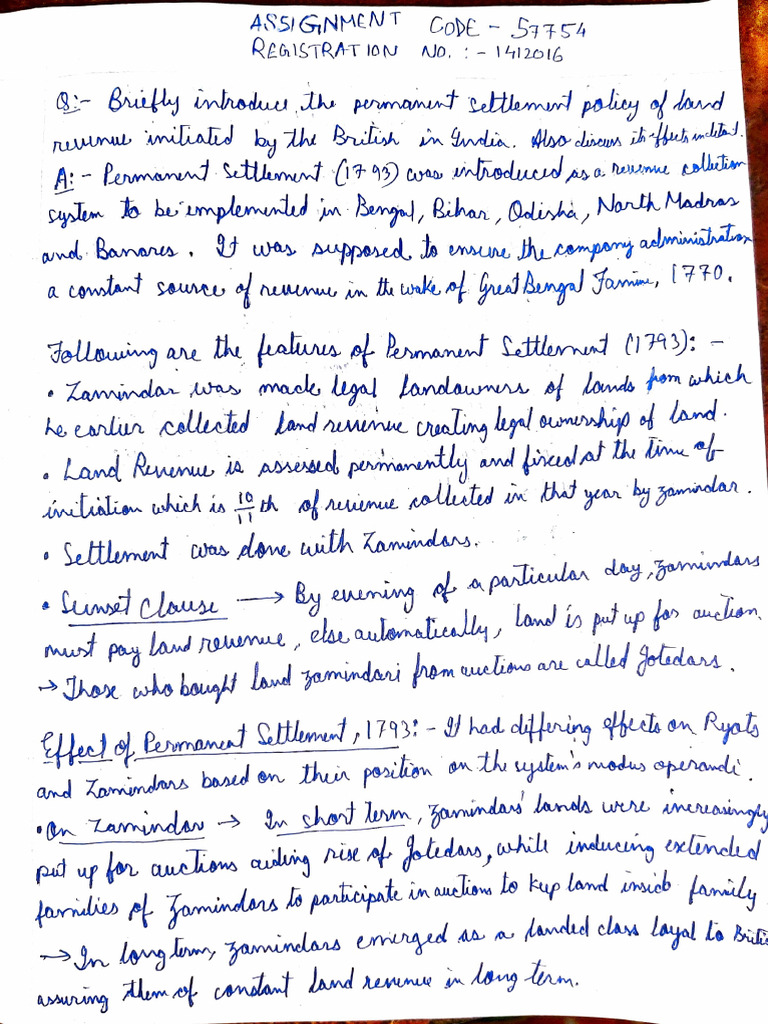 ASSIGNMENT CODE - 57754
REGISTRATION NO. : - 1412016
Q:- Briefly introduce the permanent settlement policy of land
revenue initiated by the British in India. Also discuss its effects in detail.
A:- Permanent Settlement (1793) was introduced as a revenue collection
system to be implemented in Bengal, Bihar, Odisha, North Madras
and Banares. It was supposed to ensure the company administration
a constant source of revenue in the wake of Great Bengal Famine, 1770.
Following are the features of Permanent Settlement (1793): -
• Zamindar was made legal landowners of lands from which
he earlier collected land revenue creating legal ownership of land.
• Land Revenue is assessed permanently and fixed at the time of
initiation which is 10/11 th of revenue collected in that year by zamindar.
• Settlement was done with Zamindars.
• Sunset Clause → By evening of a particular day, zamindars
must pay land revenue, else automatically, land is put up for auction.
→ Those who bought land zamindari from auctions are called Jotedars.
Effect of Permanent Settlement, 1793: - It had differing effects on Ryots
and Zamindars based on their position on the system's modus operandi.
• On Zamindar → In short term, zamindars' lands were increasingly
put up for auctions aiding rise of Jotedars, while inducing extended
families of Zamindars to participate in auctions to keep land inside family
→ In long term, zamindars emerged as a landed class loyal to British
assuring them of constant land revenue in long term.